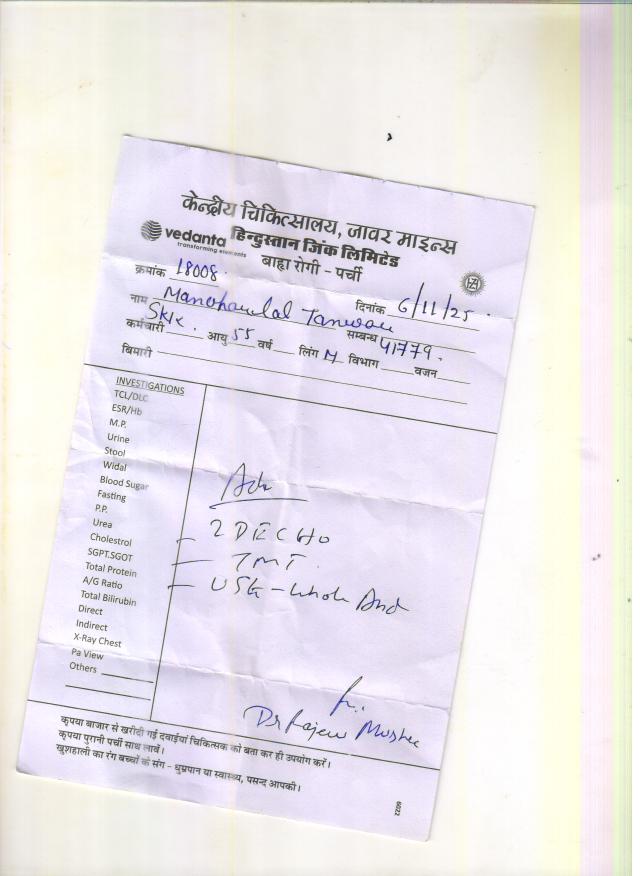 केन्द्रीय चिकित्सालय, जावर माइन्स
vedanta हिन्दुस्तान जिंक लिमिटेड
transforming elements
बाह्य रोगी - पर्ची
क्रमांक 18008.
दिनांक 6/11/25.
नाम Manoharlal Tanwar
सम्बन्ध 41779.
कर्मचारी SKIK. आयु 55 वर्ष लिंग M विभाग वजन
बिमारी
INVESTIGATIONS
TCL/DLC
ESR/Hb
M.P.
Urine
Stool
Widal
Blood Sugar
Fasting
P.P.
Urea
Cholestrol
SGPT.SGOT
Total Protein
A/G Ratio
Total Bilirubin
Direct
Indirect
X-Ray Chest
Pa View
Others
Adv
- 2 D ECHO
- TMT.
- USG - whole Abd
Dr Rajeev
कृपया बाजार से खरीदी गई दवाईयां चिकित्सक को बता कर ही उपयोग करें।
कृपया पुरानी पर्ची साथ लावें।
खुशहाली का रंग बच्चों के संग - धुम्रपान या स्वास्थ्य, पसन्द आपकी।
6022